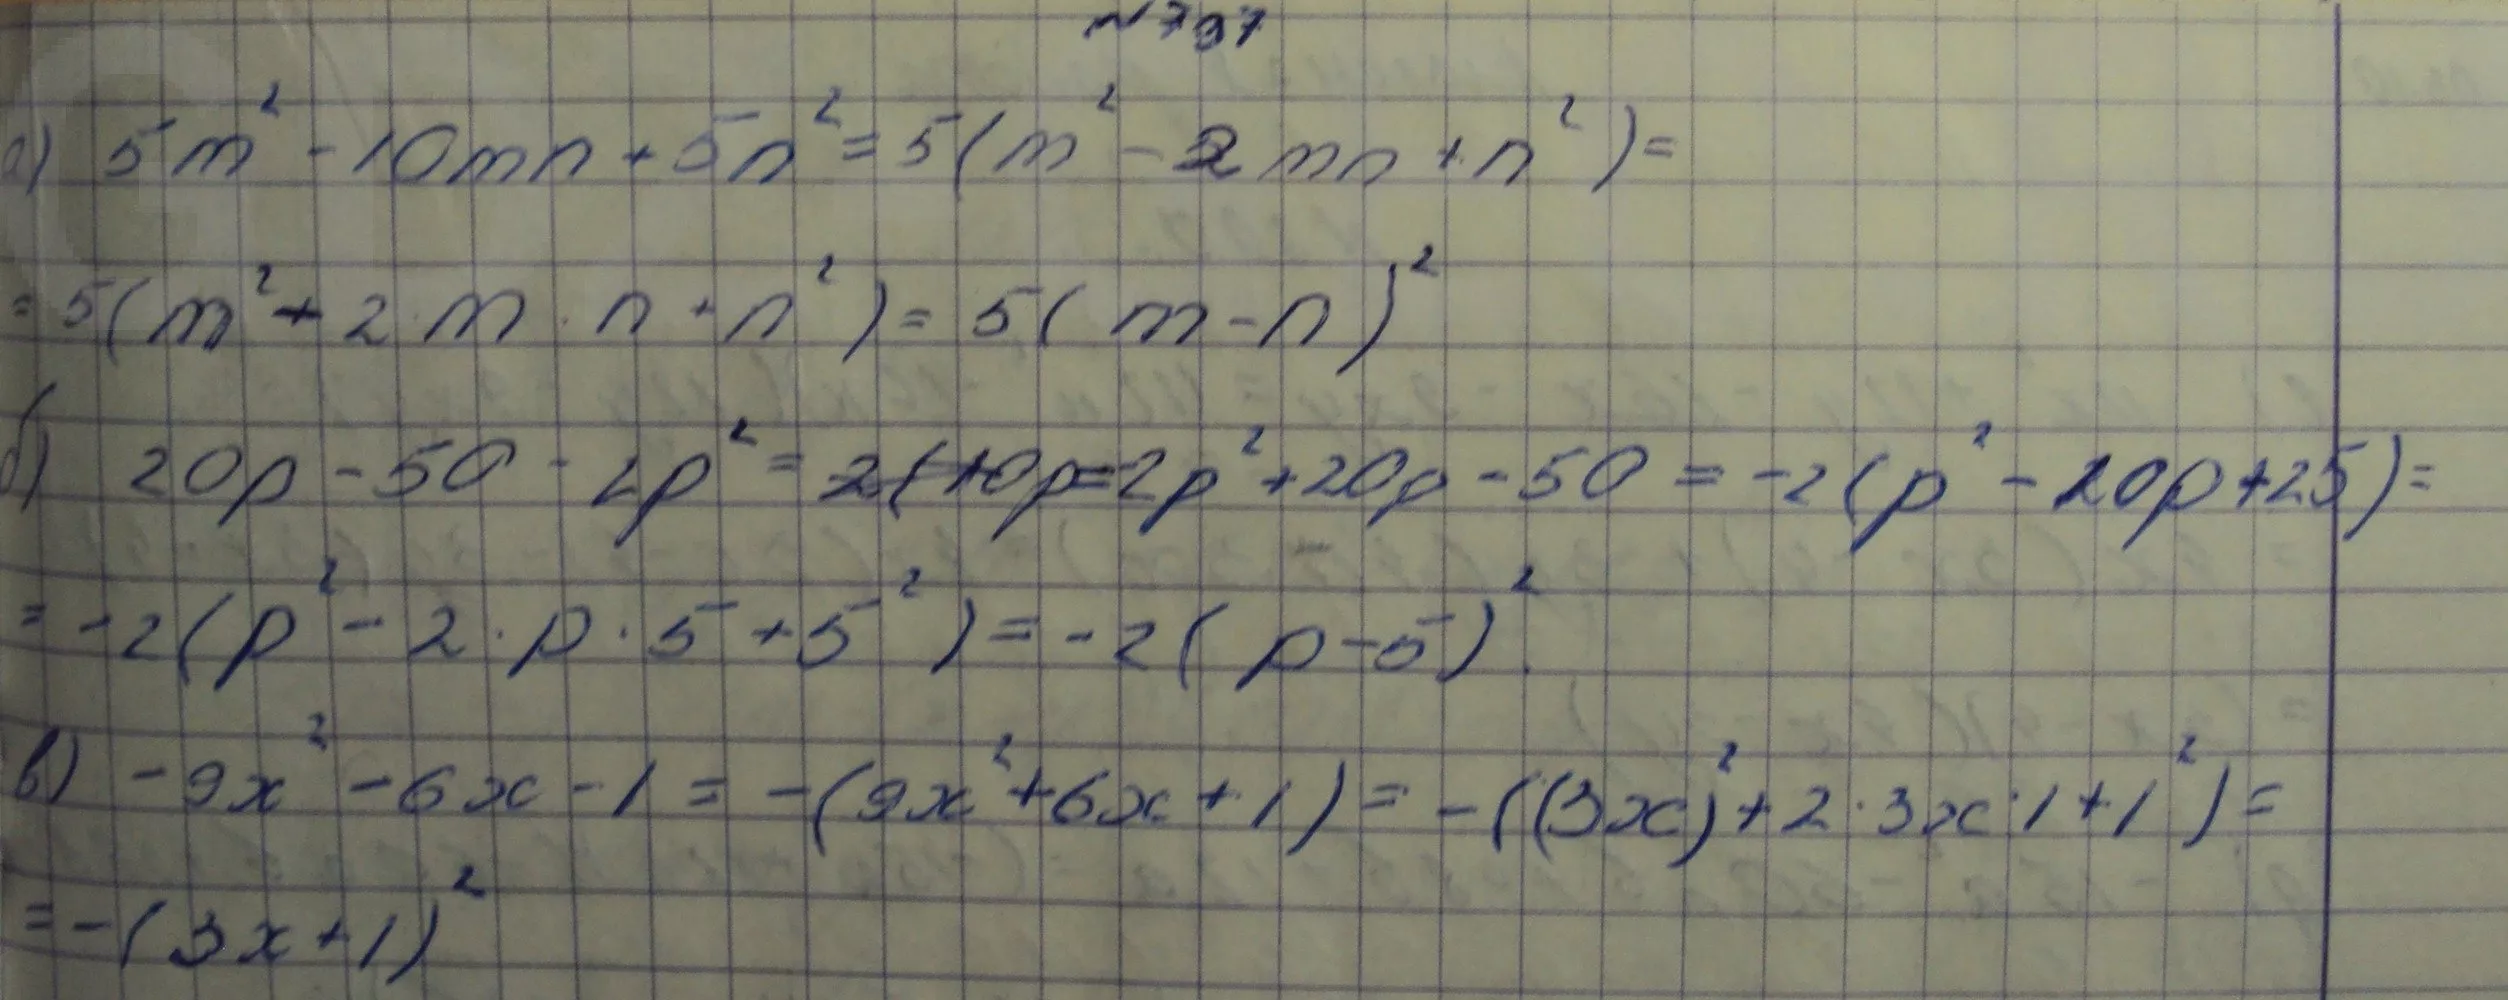 №797
а) 5m² - 10mn + 5n² = 5(m² - 2mn + n²) =
= 5(m² + 2·m·n + n²) = 5(m - n)²
б) 20p - 50 - 2p² = -2p² + 20p - 50 = -2(p² - 20p + 25) =
= -2(p² - 2·p·5 + 5²) = -2(p - 5)².
в) -9x² - 6x - 1 = -(9x² + 6x + 1) = -((3x)² + 2·3x·1 + 1²) =
= -(3x + 1)²